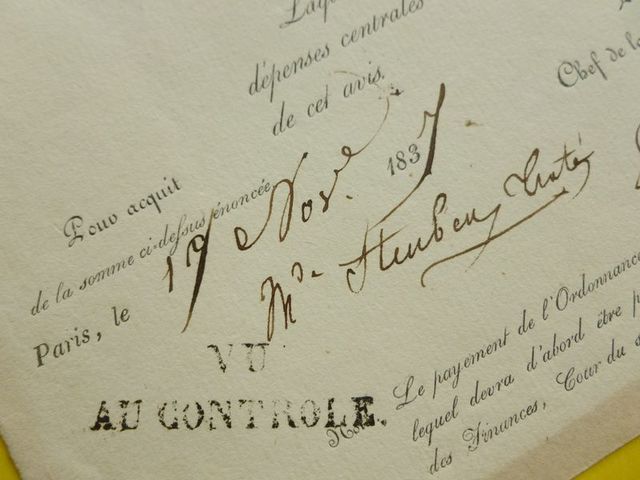 dépenses centrales
de cet avis.
Chef de la
Pour acquit
de la somme ci-dessus énoncée
Paris, le 17 Novre. 1837
Mde Steuben
VU
AU CONTROLE.
Le payement de l'Ordonnance
lequel devra d'abord être
des Finances, Cour du